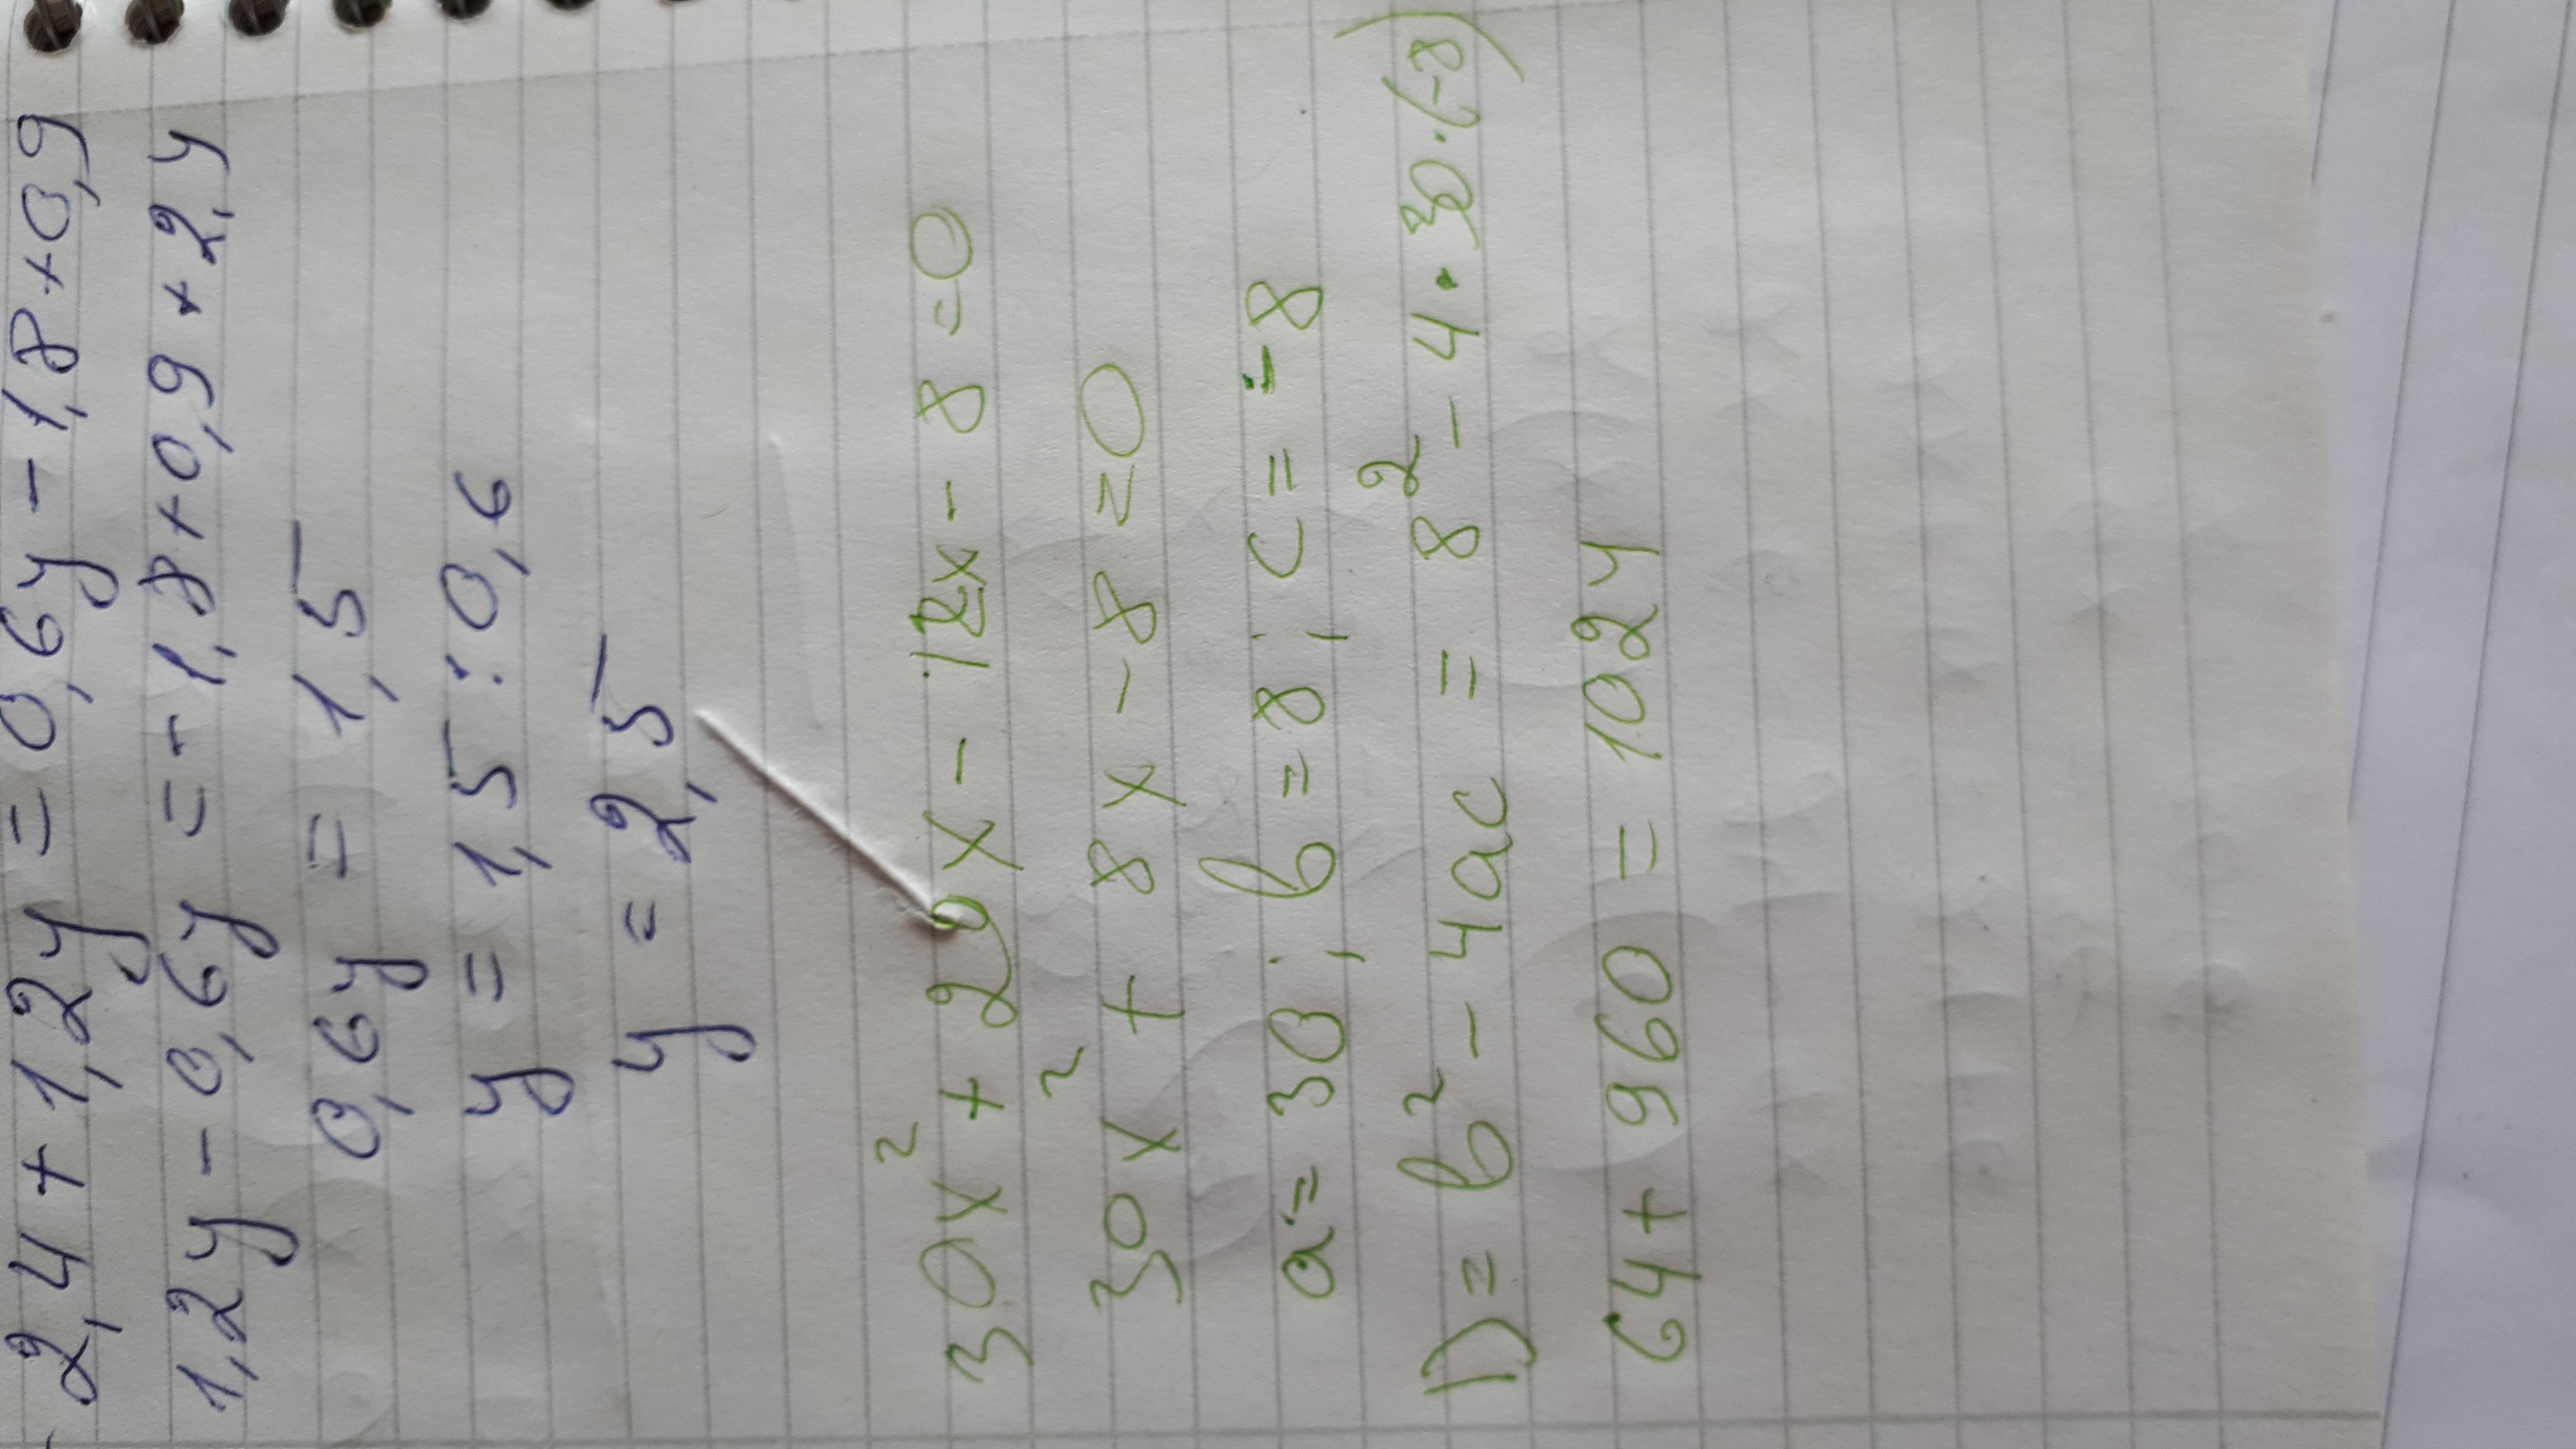 - 2,4 + 1,2y = 0,6y - 1,8 + 0,9
1,2y - 0,6y = - 1,8 + 0,9 + 2,4
0,6y = 1,5
y = 1,5 : 0,6
y = 2,5
30x² + 20x - 12x - 8 = 0
30x² + 8x - 8 = 0
a = 30; b = 8; c = -8
D = b² - 4ac = 8² - 4 · 30 · (-8)
64 + 960 = 1024